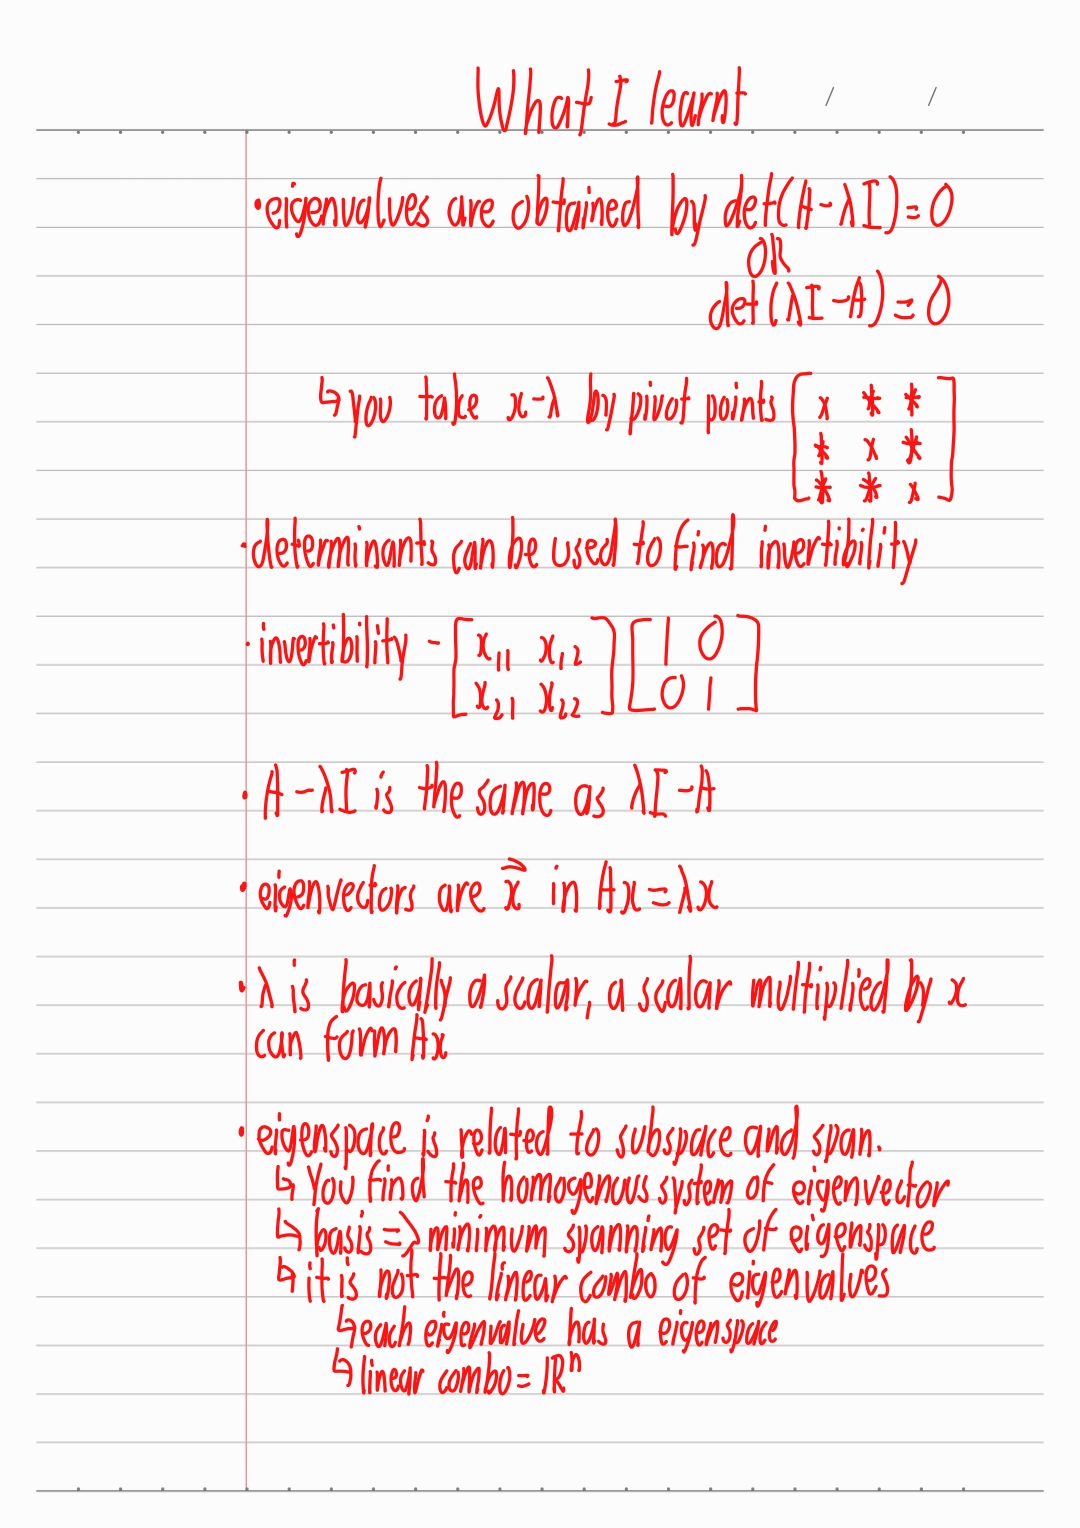 What I learnt / /
• eigenvalues are obtained by det(A-λI)=0
OR
det(λI-A)=0
↳ you take x-λ by pivot points [x * *
* x *
* * x]
• determinants can be used to find invertibility
• invertibility - [x₁₁ x₁₂] [1 0]
[x₂₁ x₂₂] [0 1]
• A-λI is the same as λI-A
• eigenvectors are x⃗ in Ax=λx
• λ is basically a scalar, a scalar multiplied by x
can form Ax
• eigenspace is related to subspace and span.
↳ You find the homogenous system of eigenvector
↳ basis => minimum spanning set of eigenspace
↳ it is not the linear combo of eigenvalues
↳ each eigenvalue has a eigenspace
↳ linear combo = ℝⁿ